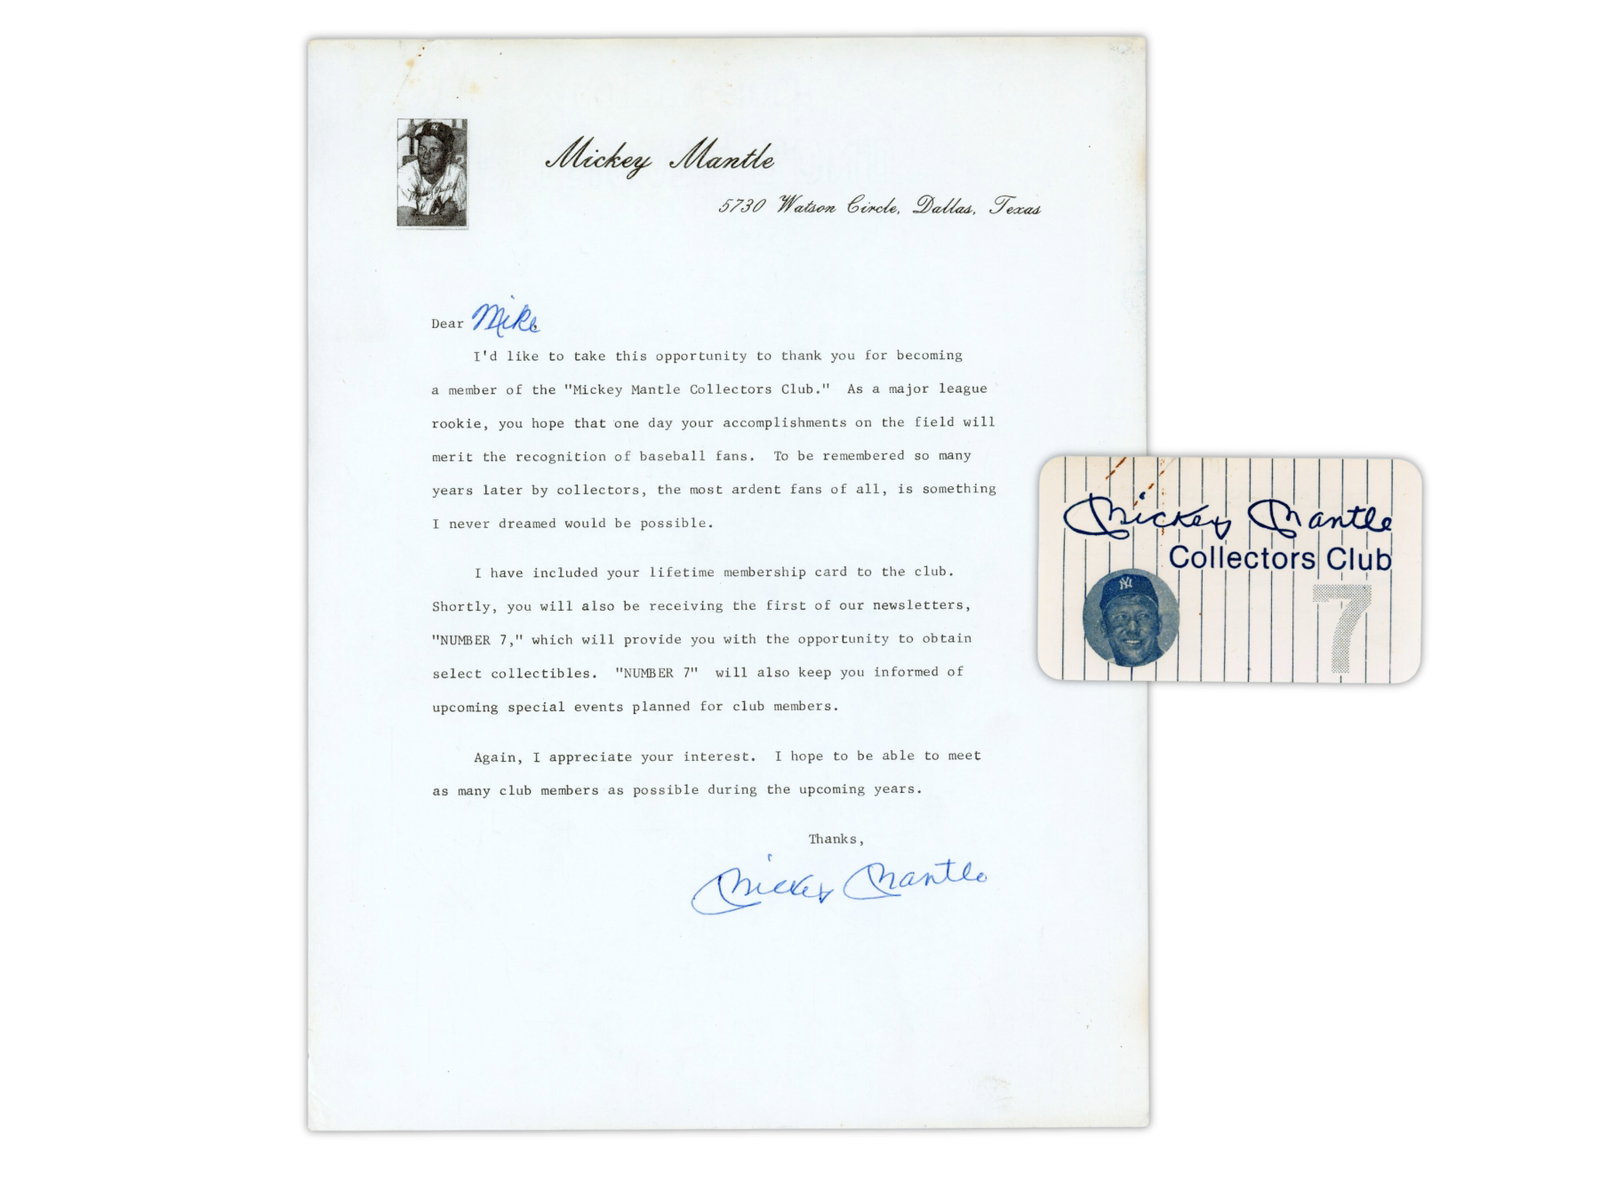 Mickey Mantle
5730 Watson Circle, Dallas, Texas
Dear Mike
I'd like to take this opportunity to thank you for becoming
a member of the "Mickey Mantle Collectors Club."  As a major league
rookie, you hope that one day your accomplishments on the field will
merit the recognition of baseball fans.  To be remembered so many
years later by collectors, the most ardent fans of all, is something
I never dreamed would be possible.
I have included your lifetime membership card to the club.
Shortly, you will also be receiving the first of our newsletters,
"NUMBER 7," which will provide you with the opportunity to obtain
select collectibles.  "NUMBER 7"  will also keep you informed of
upcoming special events planned for club members.
Again, I appreciate your interest.  I hope to be able to meet
as many club members as possible during the upcoming years.
Thanks,
Mickey Mantle
Mickey Mantle
Collectors Club
NY
7